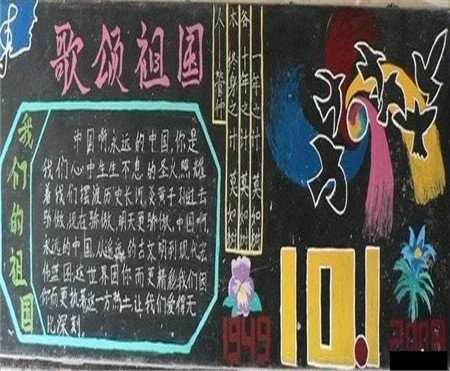 歌颂祖国
我们的祖国
中国啊,永远的中国,你是
我们心中生生不息的圣火,照耀
着我们摆渡历史长河,炎黄子孙过去
骄傲,现在骄傲,明天更骄傲。中国啊,
永远的中国,从遥远的古文明到现代宏
伟蓝图,这世界因你而更精彩,我们因
你而更执着,这一方热土让我们爱得无
比深刻.
一年之计 莫如
十年之计 莫如
终身之计 莫如
人 管仲
1949
10.1